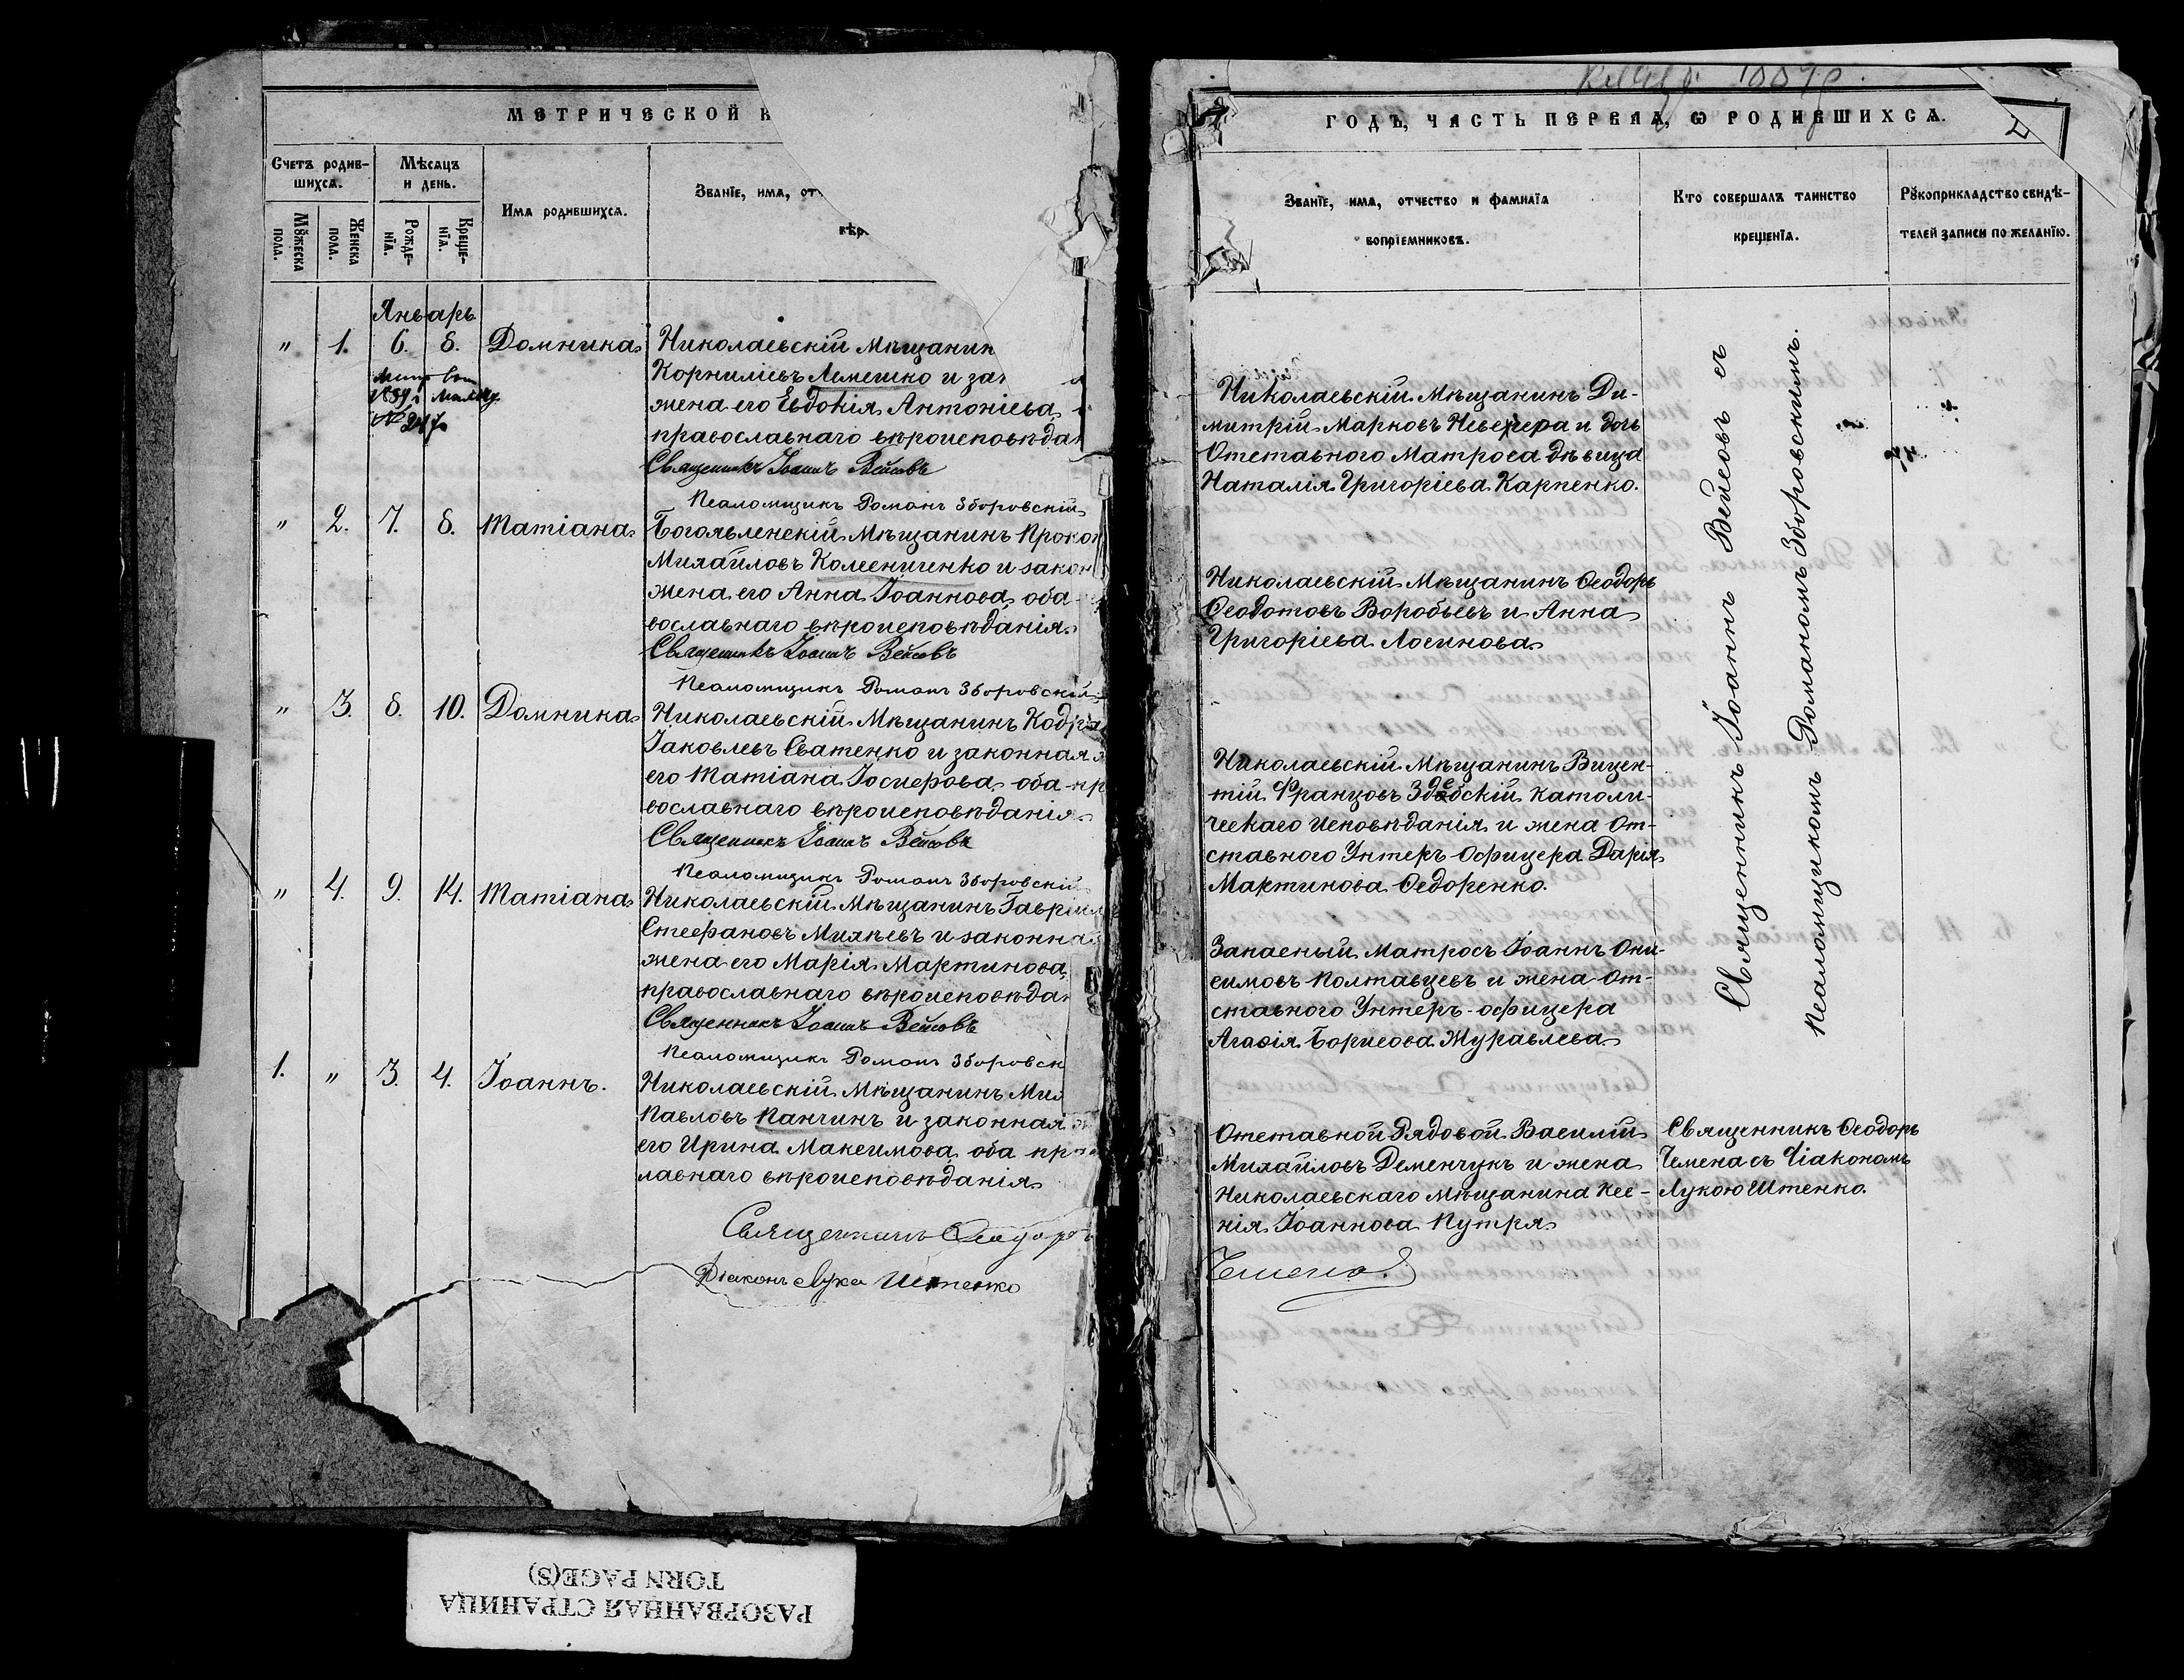 МЕТРИЧЕСКОЙ К
Счетъ родив-
шихсѧ.
Мꙋжеска
пола.
Женска
пола.
Мѣсѧцъ
и день.
Рожде-
нїѧ.
Креще-
нїѧ.
Имѧ родившихсѧ.
Званїе, имѧ, от
вѣр
Январь
" 1. 6. 8. Домника
Николаевскій Мѣщанин
Корниліевъ Лемешко и за
жена его Евдокія Антоніева
православнаго вѣроисповѣда
Священникъ Іоаннъ Вейсовъ
Псаломщикъ Романъ Зборовскій
" 2. 7. 8. Татіана
Богоявленскій Мѣщанинъ Проко
Михайловъ Колесниченко и закон
жена его Анна Іоаннова, оба
вославнаго вѣроисповѣданія
Священникъ Іоаннъ Вейсовъ
Псаломщикъ Романъ Зборовскій
" 3. 8. 10. Домника
Николаевскій Мѣщанинъ Кодра
Іаковлевъ Сватенко и законная
его Татіана Іосифова, оба пр
вославнаго вѣроисповѣданія
Священникъ Іоаннъ Вейсовъ
Псаломщикъ Романъ Зборовскій
" 4. 9. 14. Татіана
Николаевскій Мѣщанинъ Гавріил
Стефановъ Михѣевъ и законна
жена его Марія Мартинова
православнаго вѣроисповѣда
Священникъ Іоаннъ Вейсовъ
Псаломщикъ Романъ Зборовск
1. " 3. 4. Іоаннъ.
Николаевскій Мѣщанинъ Мих
Павловъ Панчинъ и законная
его Ирина Максимова оба пр
лавнаго вѣроисповѣданія
Священникъ Ѳеодоръ
Діаконъ Лука Иштенко
ГОДЪ, ЧАСТЬ ПЕРВАѦ, Ѡ РОДИВШИХСѦ.
Званїе, имѧ, отчество и фамилїѧ
воспрїемниковъ.
Кто совершалъ таинство
крещенїѧ.
Рꙋкоприкладство свидѣ-
телей записи по желанїю.
Николаевскій Мѣщанинъ Ди-
митрій Марковъ и дочь
Отставного Матроса дѣвица
Наталія Григоріева Карпенко.
Николаевскій Мѣщанинъ Ѳеодоръ
Ѳеодотовъ Воробьевъ и Анна
Григоріева Лосинова
Николаевскій Мѣщанинъ Вицен-
тій Францовъ католи-
ческаго исповѣданія и жена От-
ставного Унтеръ Офицера Дарія
Мартинова Ѳедоренко.
Запасный Матросъ Іоаннъ Они-
симовъ Полтавцевъ и жена От-
ставного Унтеръ-офицера
Агаѳія Борисова Журавлева
Священникъ Іоаннъ Вейсовъ съ
Псаломщикомъ Романомъ Зборовскимъ.
Отставной Рядовой Василій
Михайловъ Деменчукъ и жена
Николаевскаго Мѣщанина Ксе-
нія Іоаннова Путря
Священникъ Ѳеодоръ
Чемена съ Діакономъ
Лукою Штенко.
Чемена
РАЗОРВАННАЯ СТРАНИЦА
TORN PAGE(S)